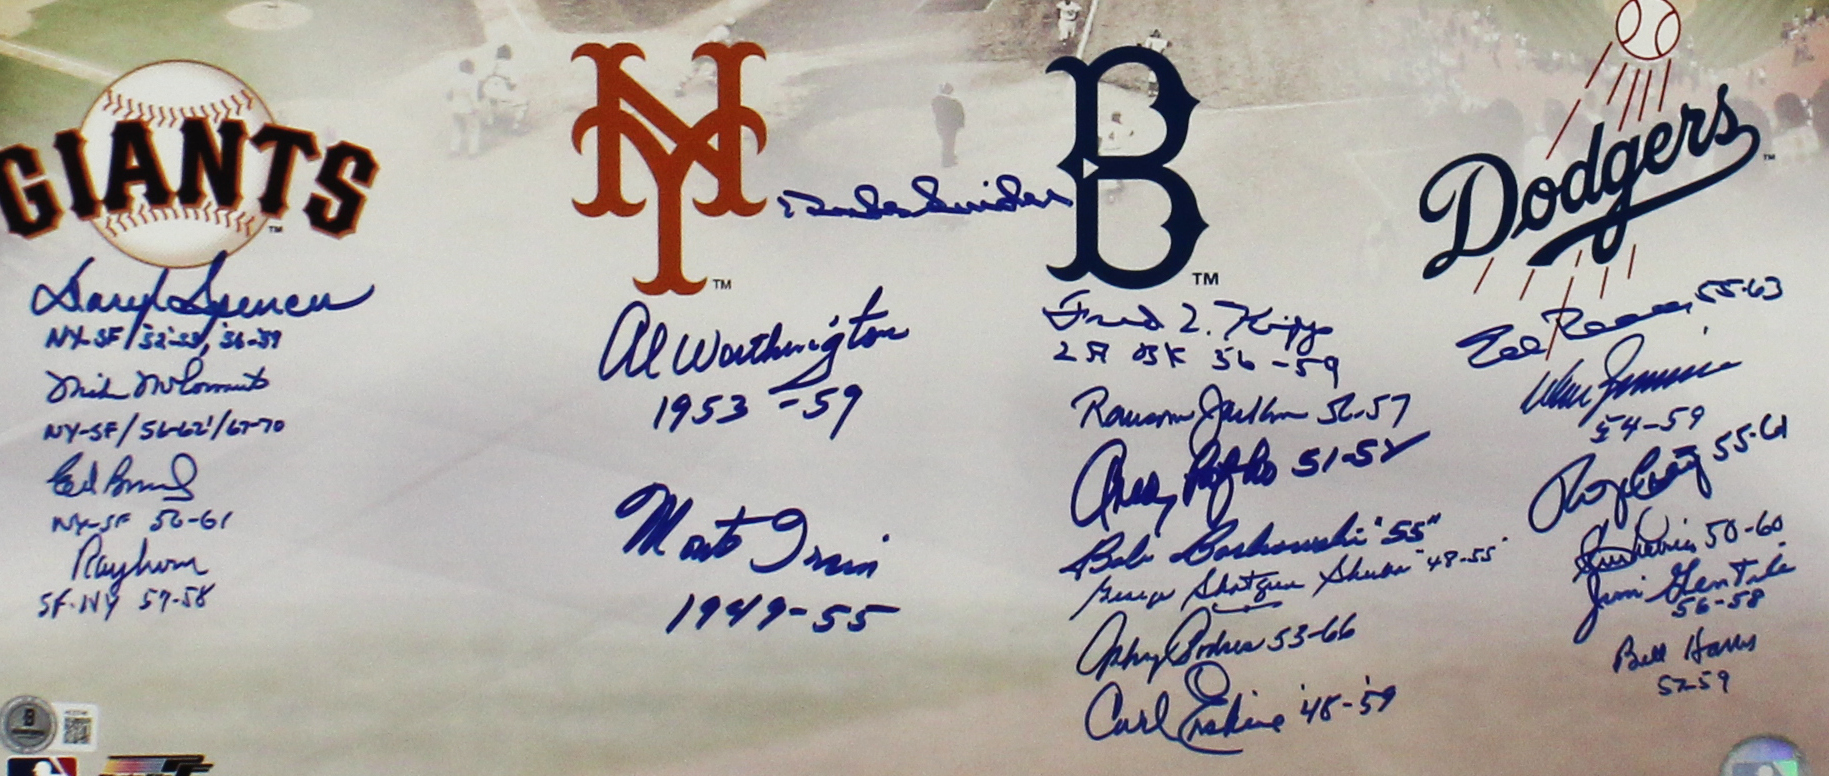 GIANTS
TM
Daryl Spencer
NY-SF/'52-'53, '56-'59
Mike McCormick
NY-SF/56-62'/67-70
Ed Bressoud
NY-SF 56-61
Ray
SF-NY 57-58
NY
TM
Duke Snider
Al Worthington
1953-59
Monte Irvin
1949-55
B
TM
Fred L. Kipp
LA BK 56-59
Ransom Jackson 56-57
Andy Pafko 51-52
Bob Borkowski "55"
George Shotgun Shuba "48-55"
Johnny Podres 53-66
Carl Erskine '48-'59
Dodgers
TM
Ed Roebuck 55-63
54-59
Roger Craig 55-61
50-60
Jim Gentile
56-58
Bill Harris
57-59
B